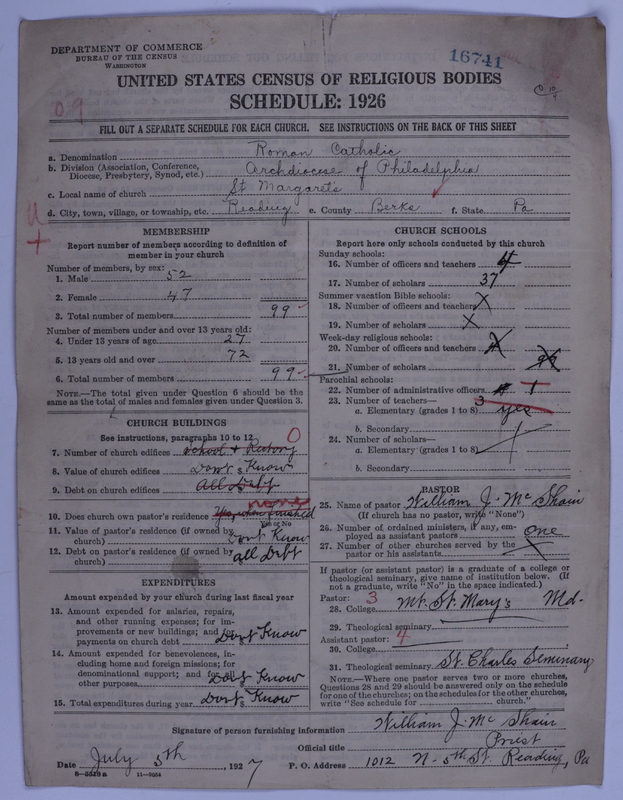 DEPARTMENT OF COMMERCE
BUREAU OF THE CENSUS
WASHINGTON
16741
UNITED STATES CENSUS OF RELIGIOUS BODIES
SCHEDULE: 1926
FILL OUT A SEPARATE SCHEDULE FOR EACH CHURCH. SEE INSTRUCTIONS ON THE BACK OF THIS SHEET
a. Denomination Roman Catholic
b. Division (Association, Conference, Diocese, Presbytery, Synod, etc.) Archdiocese of Philadelphia
c. Local name of church St. Margaret's
d. City, town, village, or township, etc. Reading e. County Berks f. State Pa
MEMBERSHIP
Report number of members according to definition of
member in your church
Number of members, by sex:
1. Male 52
2. Female 47
3. Total number of members 99
Number of members under and over 13 years old:
4. Under 13 years of age 27
5. 13 years old and over 72
6. Total number of members 99
NOTE.—The total given under Question 6 should be the
same as the total of males and females given under Question 3.
CHURCH BUILDINGS
See instructions, paragraphs 10 to 12
7. Number of church edifices School + Rectory 0
8. Value of church edifices Dont $ Know
9. Debt on church edifices All Debt
none
10. Does church own pastor's residence Yes, when finished
Yes or No
11. Value of pastor's residence (if owned by church) Dont Know
12. Debt on pastor's residence (if owned by church) all Debt
EXPENDITURES
Amount expended by your church during last fiscal year
13. Amount expended for salaries, repairs,
and other running expenses; for im-
provements or new buildings; and for
payments on church debt Dont Know
14. Amount expended for benevolences, in-
cluding home and foreign missions; for
denominational support; and for all
other purposes Dont Know
15. Total expenditures during year Dont $ Know
CHURCH SCHOOLS
Report here only schools conducted by this church
Sunday schools:
16. Number of officers and teachers 4
17. Number of scholars 37
Summer vacation Bible schools:
18. Number of officers and teachers X
19. Number of scholars X
Week-day religious schools:
20. Number of officers and teachers
21. Number of scholars
Parochial schools:
22. Number of administrative officers 1
23. Number of teachers— 3
a. Elementary (grades 1 to 8) yes
b. Secondary
24. Number of scholars—
a. Elementary (grades 1 to 8)
b. Secondary
PASTOR
25. Name of pastor William J. Mc Shain
(If church has no pastor, write "None")
26. Number of ordained ministers, if any, em-
ployed as assistant pastors one
27. Number of other churches served by the
pastor or his assistants
If pastor (or assistant pastor) is a graduate of a college or
theological seminary, give name of institution below. (If
not a graduate, write "No" in the space indicated.)
Pastor: 3
28. College Mt. St. Mary's Md.
29. Theological seminary
Assistant pastor: 4
30. College
31. Theological seminary St. Charles Seminary
NOTE.—Where one pastor serves two or more churches,
Questions 28 and 29 should be answered only on the schedule
for one of the churches; on the schedules for the other churches,
write "See schedule for church."
Signature of person furnishing information William J. Mc Shain
Official title Priest
Date July 5th, 1927 P. O. Address 1012 N. 5th St. Reading, Pa
8—5518a 11—8034